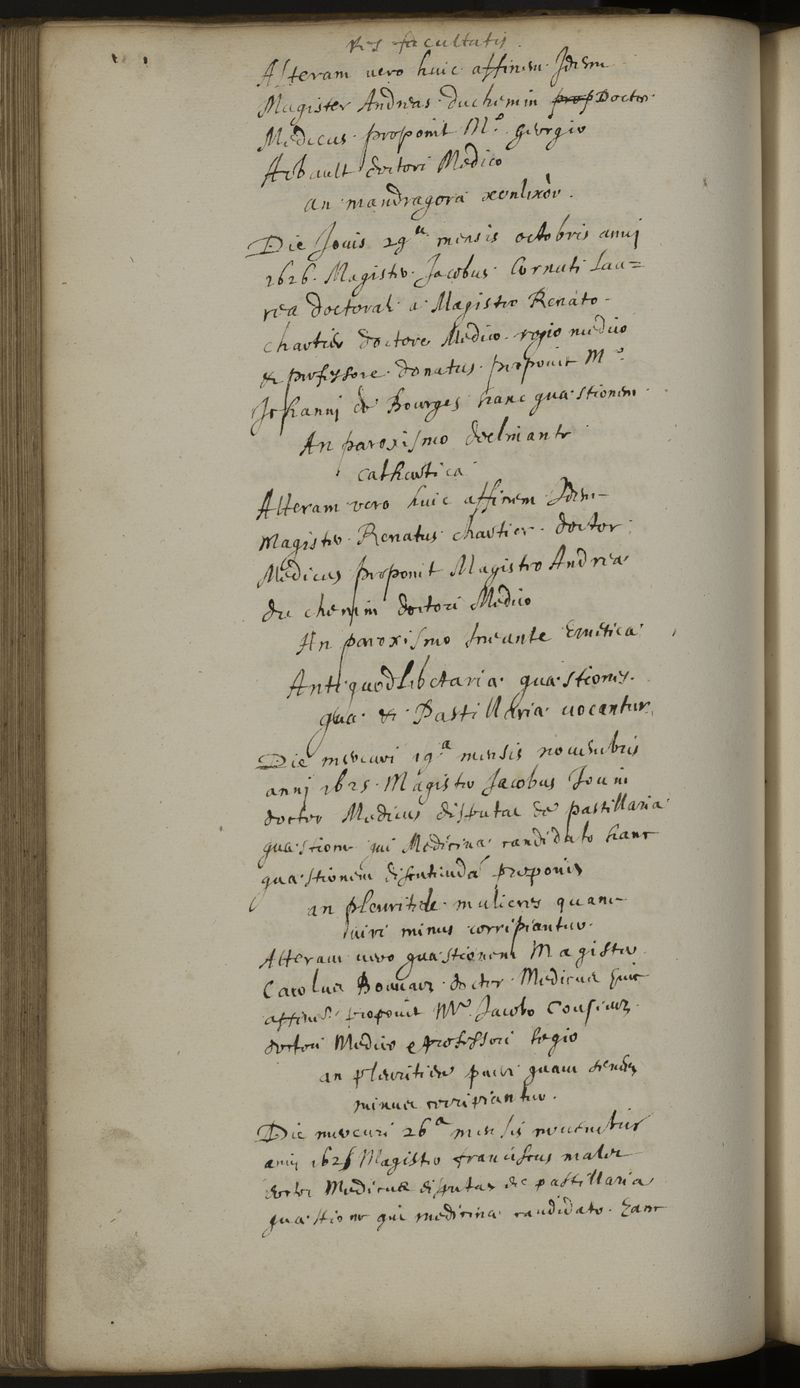 res facultatis.
Alteram vero huic affinem Idem
Magister Andreas duchemin prop Doctor
Medicus proponit M.º georgio
Arbault doctori Medico
an mandragora
Die Jovis 29ª mensis octobris annj
1626. Magister Jacobus Cornuti Lau=
rea doctorali a Magistro Renato
chartier doctore Medico regio medico
& professore donatus proponit M.º
Johannj de Bourges hanc quæstionem
An paroxismo declinante
cathartica
Alteram vero huic affinem Idem
Magister Renatus chartier doctor
Medicus proponit Magistro Andrea
du chemin doctori Medico
An paroxismo ineunte Emetica
Antiquodlibetariæ quæstiones
quæ & Pastillariæ vocantur.
Die mercuri 19ª mensis novembris
annj 1625 Magister Jacobus
doctor Medicus disputat de pastillaria
quæstione qui Medicinæ candidato hanc
quæstionem discutiendã proponit
an pleuritide mulieres quam
viri minus corripiantur.
Alteram vero quæstionem Magister
Carolus Bouvard doctor Medicus huic
affinē proponit M.º Jacobo Cousinot
doctori Medico & professori Regio
an pleuritide pueri quam senes
minus corripiantur.
Die mercuri 26ª mensis novembris
annj 1625 Magister franciscus
doctor Medicus disputat de pastillaria
quæstione qui medicinæ candidato hanc